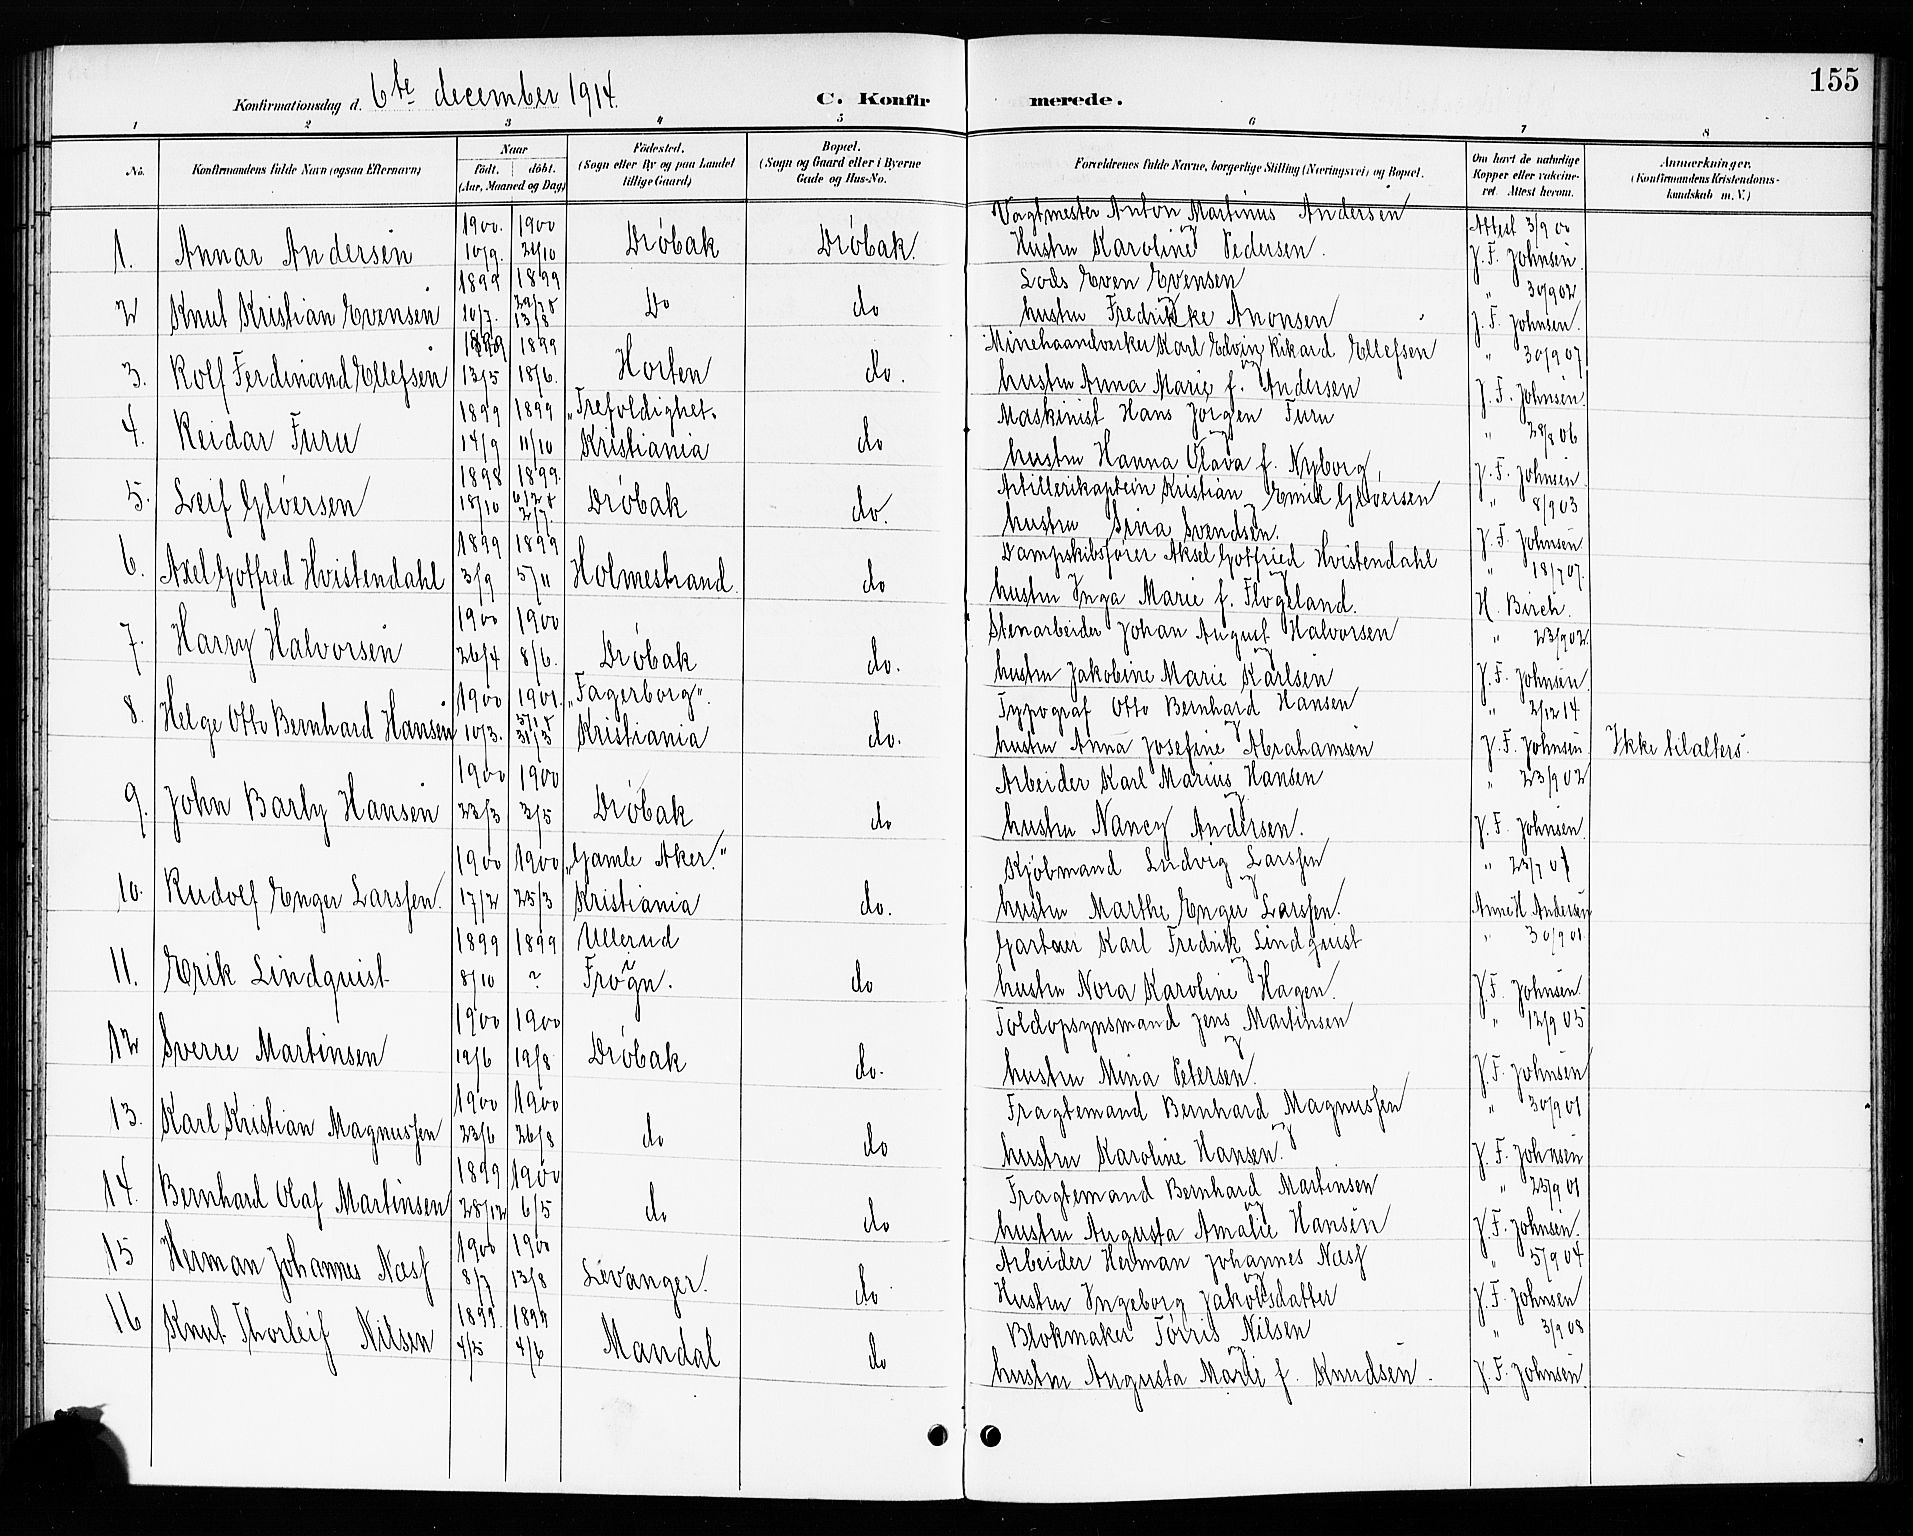 155
Konfirmationsdag d. 6te december 1914.
C. Konfirmerede.
1 2 3 4 5 6 7 8
No.
Konfirmandens fulde Navn (ogsaa Efternavn)
Naar
födt. döbt.
(Aar, Maaned og Dag)
Födested.
(Sogn eller By og paa Landet
tillige Gaard)
Bopæl.
(Sogn og Gaard eller i Byerne
Gade og Hus-No.
Forældrenes fulde Navne, borgerlige Stilling (Næringsvei) og Bopæl.
Om havt de naturlige
Kopper eller vaccine-
ret. Attest herom.
Anmærkninger.
(Konfirmandens Kristendoms-
kundskab m. V.)
1. Annar Andersen 1900. 10/9. 1900 21/10 Dröbak Dröbak. Vagtmester Anton Martinus Andersen og
Hustru Karoline Pedersen. Attest 3/9 00 J. F. Johnsen.
2 Knut Kristian Evensen 1899 10/7. 1899 13/8 Do do Lods Even Evensen
hustru Fredrikke Anonsen " 30/9 02 J. F. Johnsen.
3. Rolf Ferdinand Ellefsen 1899 13/5 1899 18/6. Horten do. Minehaandverker Karl Edvin Rikard Ellefsen og
hustru Anna Marie f. Andersen " 30/9 07 J. F. Johnsen.
4. Reidar Furu 1899 14/9 1899 11/10 "Trefoldighet. Kristiania do Maskinist Hans Jörgen Furu og
hustru Hanna Olava f. Nyborg, " 28/8 06 J. F. Johnsen.
5. Leif Glöersen 1898 18/10 1899. 2/7. Dröbak do. Artillerikaptein Kristian Emil Glöersen og
hustru Sina Svendsen. " 8/9 03 J. F. Johnsen
6. Axel Gotfred Hvistendahl 1899 3/9 1899 5/11 Holmestrand. do Dampskibsförer Aksel Gotfried Hvistendahl og
hustru Inga Marie f. Flögeland. " 18/7 07. H. Birch.
7. Harry Halvorsen 1900 26/4 1900 8/6. Dröbak do. Stenarbeider Johan August Halvorsen og
hustru Jakobine Marie Karlsen " 23/9 02. J. F. Johnsen.
8. Helge Otto Bernhard Hansen 1900 10/3. 1901. 31/3 "Fagerborg". Kristiania do. Typograf Otto Bernhard Hansen og
hustru Anna Josefine Abrahamsen " 2/12 14 J. F. Johnsen Ikke tilalters.
9. John Barly Hansen 1900 23/3 1900 3/5 Dröbak do Arbeider Karl Marius Hansen og
hustru Nancy Andersen. " 23/9 02 J. F. Johnsen.
10. Rudolf Enger Larssen. 1900 17/2 1900 25/3 "Gamle Aker." Kristiania do. Kjöbmand Ludvig Larssen og
hustru Marthe Enger Larssen. " 23/7 01 Anne H Andersen
11. Erik Lindquist 1899 8/10 1899 ? Ullerud Frogn. do Gartner Karl Fredrik Lindquist og
hustru Nora Karoline Hagen. " 30/9 01 J. F. Johnsen.
12 Sverre Martinsen 1900 12/6 1900 12/8 Dröbak do. Toldopsynsmand Jens Martinsen og
hustru Mina Petersen. " 12/9 05 J. F. Johnsen
13. Karl Kristian Magnussen 1900 23/6 1900 26/8 do do Fragtemand Bernhard Magnussen og
hustru Karoline Hansen. " 30/9 01 J. F. Johnsen
14. Bernhard Olaf Martinsen 1899 28/12 1900 6/5 do do Fragtemand Bernhard Martinsen og
hustru Augusta Amalie Hansen " 25/9 01 J. F. Johnsen.
15 Herman Johannes Næss 1900 8/7 1900 13/8 Levanger. do Arbeider Herman Johannes Næss og
Hustru Ingeborg Jakobsdatter " 5/9 04 J. F. Johnsen
16 Knut Thorleif Nilsen 1899. 4/5 1899 4/6 Mandal do Blokmaker Törris Nilsen og
hustru Augusta Marie f. Knudsen. " 3/9 08 J. F. Johnsen.